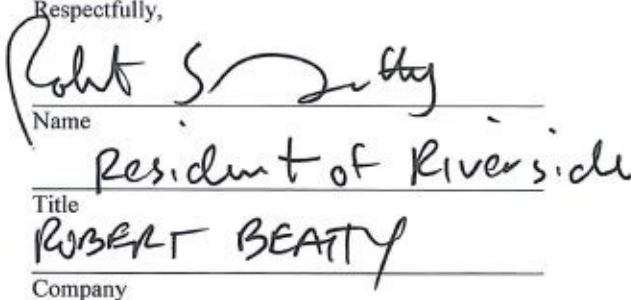 Respectfully,
Name
Resident of Riverside
Title
ROBERT BEATTY
Company